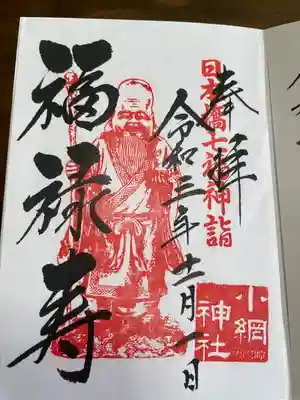 奉拝
日本橋七福神詣
令和三年十一月一日
福禄寿
小網
神社